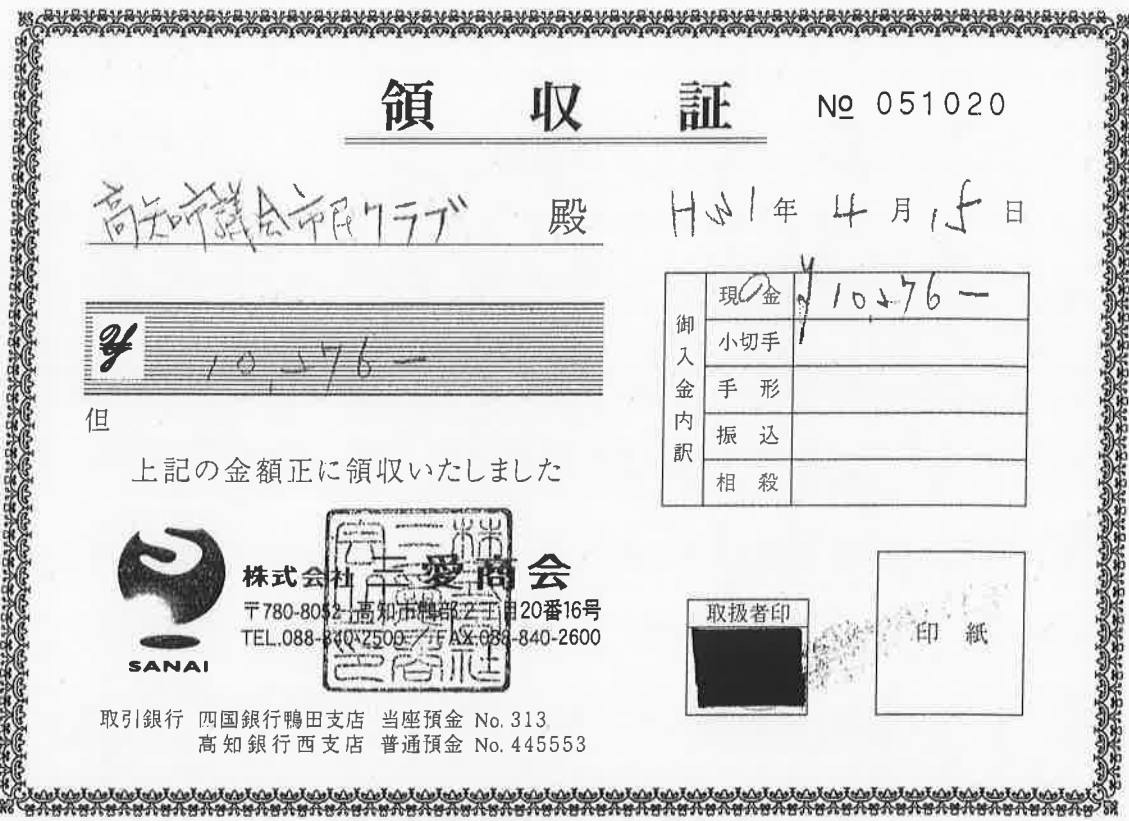 領収証
№ 051020
高知市議会市民クラブ 殿
H31年 4月15日
¥ 10,576-
但
上記の金額正に領収いたしました
御入金内訳
現金 ¥10,576-
小切手
手形
振込
相殺
SANAI
株式会社 三愛商会
〒780-8052 高知市鴨部2丁目20番16号
TEL.088-840-2500/FAX.088-840-2600
取扱者印
印紙
取引銀行 四国銀行鴨田支店 当座預金 No.313
高知銀行西支店 普通預金 No.445553